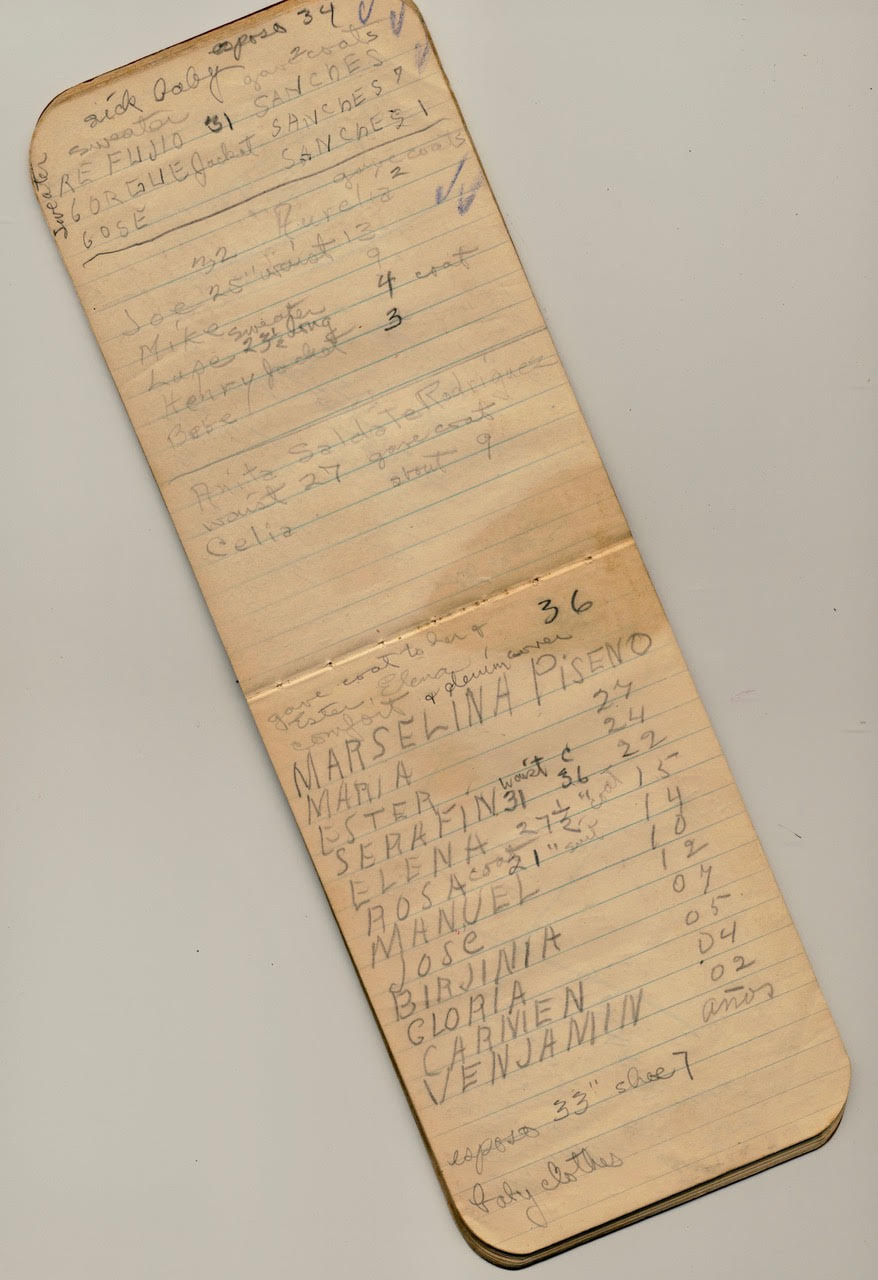 esposo 34
sick baby
gave 2 coats
sweater
REFUJIO 31 SANCHES
GORGUE Jacket SANCHES 7
GOSE SANCHES 1
sweater
gave coats
32 Aurelia 2
Joe 25" waist 13
Mike 9
Lupe sweater 23½ long 4 coat
Henry Jacket 3
Bebe
Anita Saldate Rodriguez
waist 27 gave coat
Celia about 9
36
gave coat to her &
Ester, Elena,
comfort & denim cover
MARSELINA PiSENO
MARIA 27
ESTER 24
SERAFIN waist 31 C 36 22
ELENA 27½" coat 15
ROSA coat 21" suit 14
MANUEL 10
JOSE 12
BIRJINIA 07
GLORIA 05
CARMEN 04
VENJAMIN 02
años
esposo 33" shoe 7
baby clothes